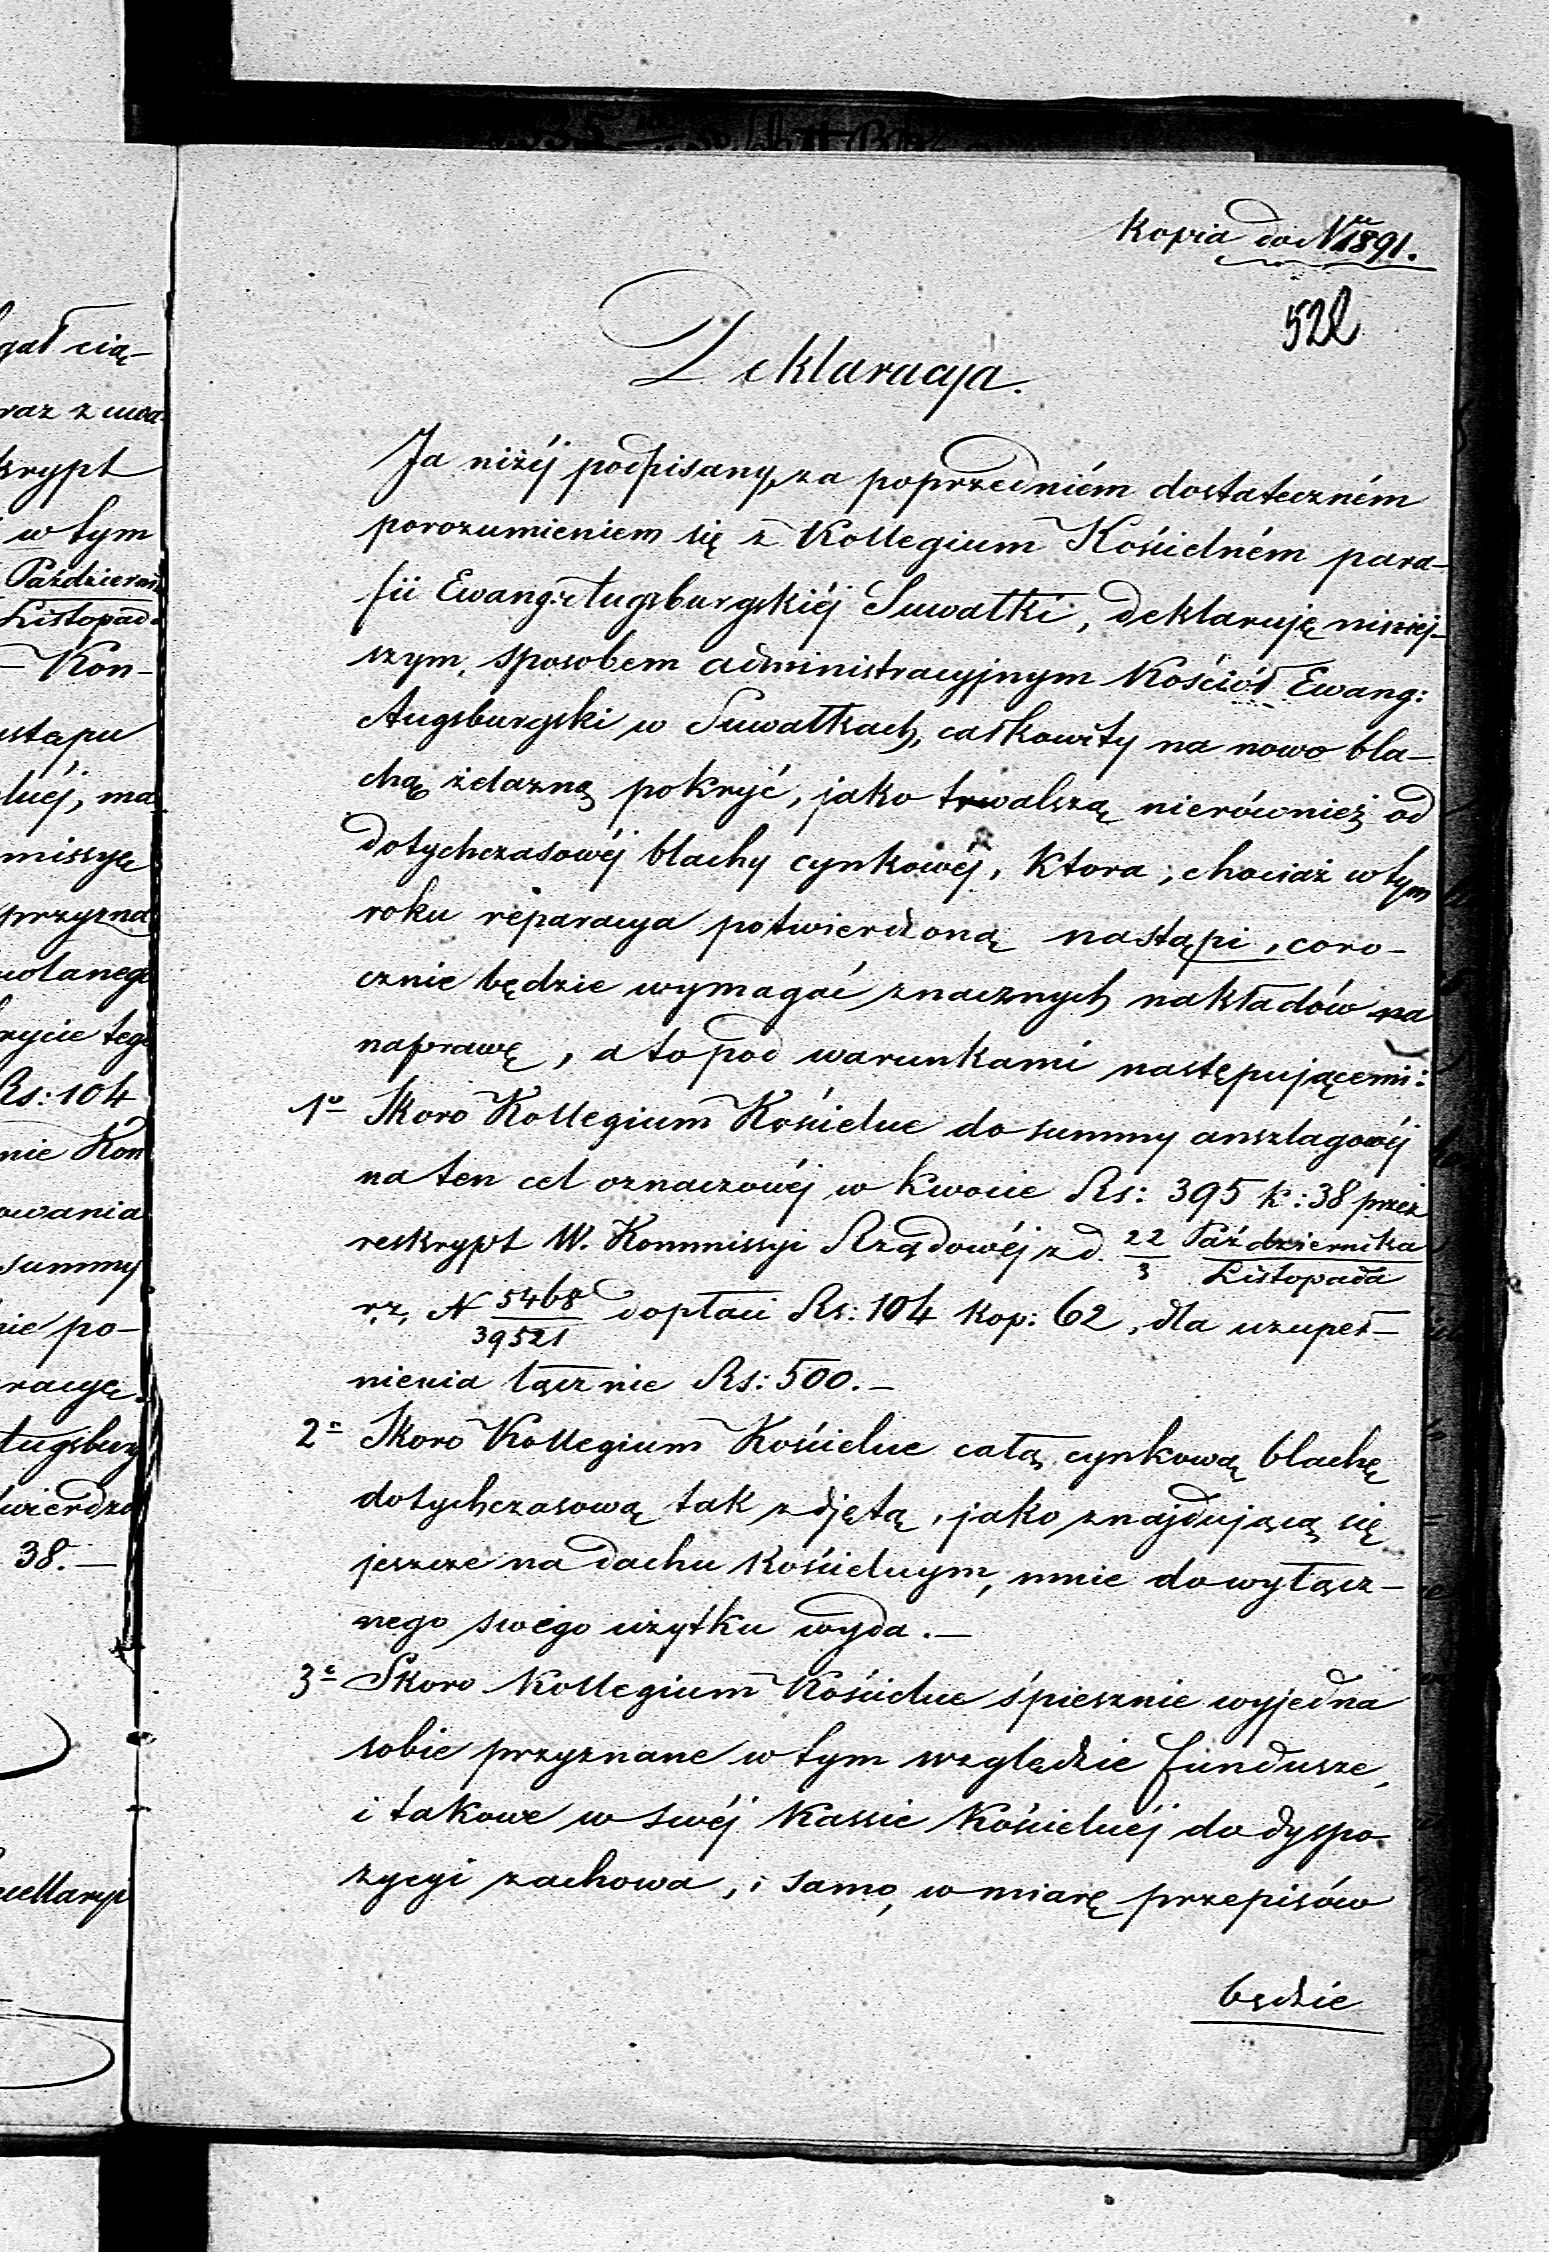 Kopia do N 1891.
522
Deklaracja.
Ja niżéj podpisany, za poprzedniém dostateczném
porozumieniem się z Kollegium Kościelném para-
fii Ewang: Augsburgskiéj Suwałki, deklaruję niniej-
szym, sposobem administracyjnym Kościół Ewang:
Augsburgski w Suwałkach, całkowity na nowo bla-
chą żelazną pokryć, jako trwalszą nierównież od
dotychczasowéj blachy cynkowéj, ktora, chociaż w tym
roku reparacya potwierdzoną nastąpi, coro-
cznie będzie wymagać znacznych nakładów na
naprawę, a to pod warunkami następującemi:
1o Skoro Kollegium Kościelne do summy anszlagowéj
na ten cel oznaczowéj w kwocie Rs: 395 k: 38 przez
reskrypt W. Kommissyi Rządowéj z d. 22/3 Października/Listopada
r. z. N 5468/39521 dopłaci Rs: 104 kop: 62, dla uzupeł-
nienia łącznie Rs: 500.-
2o Skoro Kollegium Kościelne całą cynkową blachę
dotychczasową tak zdjętą, jako znajdującą się
jeszcze na dachu Kościelnym, mnie do wyłącz-
nego swego użytku wyda.-
3o Skoro Kollegium Kościelne śpiesznie wyjedna
sobie przyznane w tym względzie fundusze,
i takowe w swéj Kassie Kościelnéj do dyspo-
zycyi zachowa, i samo, w miarę przepisów
będzie
gał cią-
raz z uwa-
krypt
w tym
Październik
Listopad
- Kon-
stępu
lnéj, ma
missyę
przyzna
wolanego
rycie tego
Rs: 104
nie Kom
owania
summy
nie po-
racyę
Augsburg
twierdzo
38.-
ncellaryi